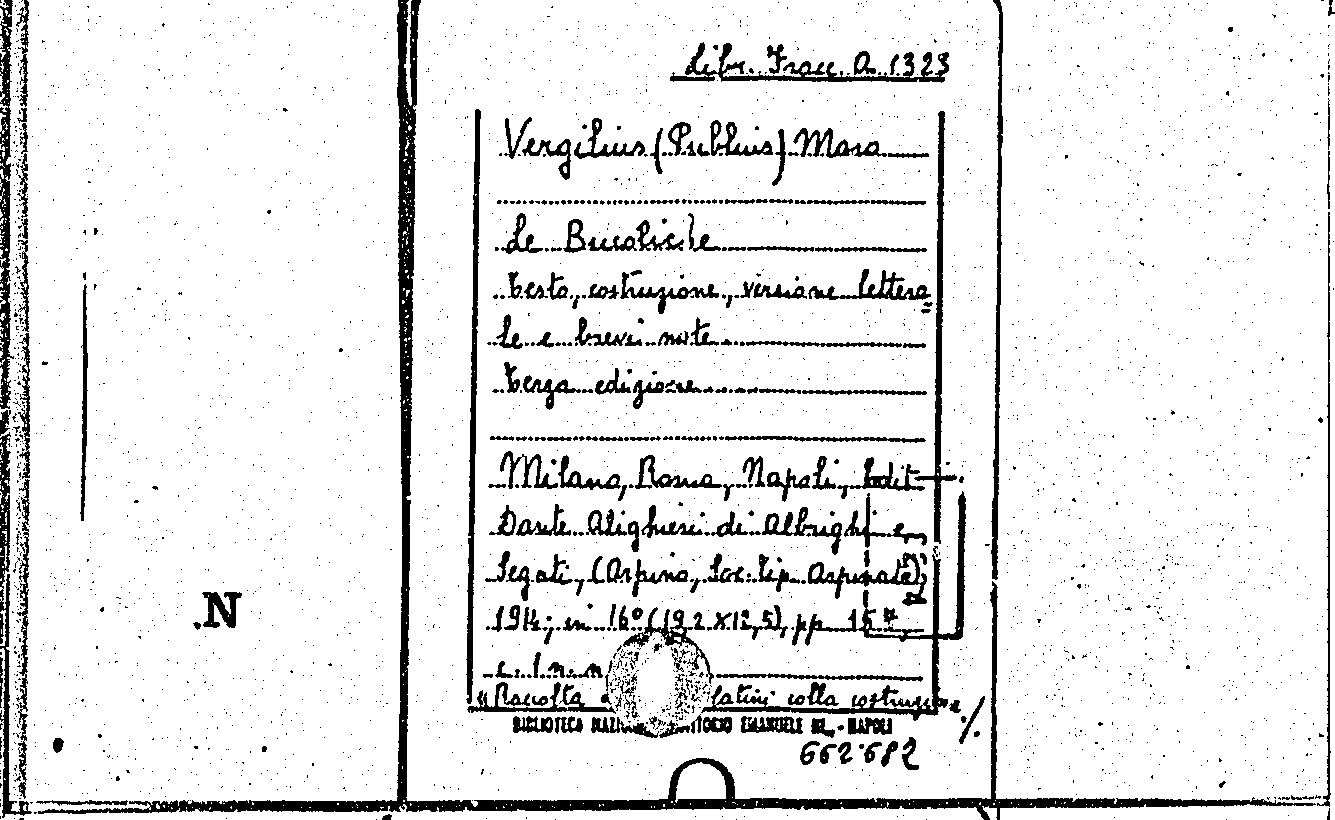 Libr. Fracc. A. 1323
Vergilius (Publius) Maro
Le Bucoliche
Testo, costruzione, versione lettera=
le e brevi note.
Terza edizione.
Milano, Roma, Napoli,
Dante Alighieri di Albrighi e
Segati, (Arpino, Soc. tip. Arpinate),
1914; in 16° (19,2 X 12,5), pp. 157
c. 1 n. n
"Raccolta latini colla costruzione
BIBLIOTECA NAZI VITTORIO EMANUELE III - NAPOLI
%.
662682
.N